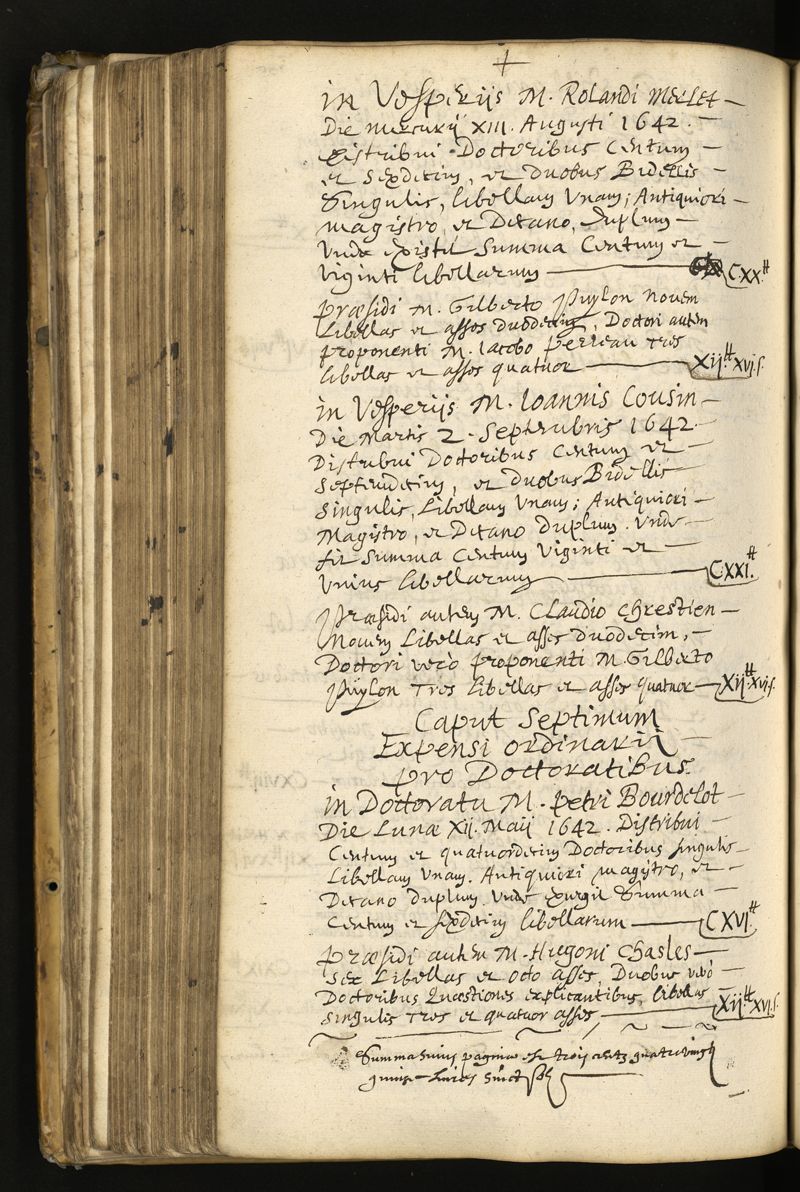 +
in Vesperijs M. Rolandi Merlet
Die mercurij XIII. Augusti 1642.
Distribui Doctoribus Centum
et Sexdecim, et duobus Bidellis
Singulis, libellam Unam; Antiquiori
magistro, et Decano, duplum
Unde existit Summa Centum et
Viginti libellarum CXX.tt
Præsidi M. Gilberto Puylon novem
Libellas et asses duodecim, Doctori autem
proponenti M. Iacobo Perreau tres
libellas et asses quatuor Xij.tt xvj.s.
in Vesperijs M. Ioannis Cousin
Die Martis 2. Septembris 1642.
Distribui Doctoribus Centum et
Septemdecim, et duobus Bidellis
Singulis, Libellam Unam; Antiquiori
Magistro, et Decano duplum. Unde
fit Summa Centum Viginti et
Unius libellarum CXXI.tt
Præsidi autem M. Claudio Chrestien
Novem Libellas et asses duodecim,
Doctori verò proponenti M. Gilberto
Puylon Tres libellas et asses quatuor Xij.tt xvj.s.
Caput Septimum
Expensi ordinarii
pro Doctoratibus.
in Doctoratu M. Petri Bourdelot
Die Lunæ Xij. Maij 1642. Distribui
Centum et quatuordecim Doctoribus singulis
Libellam Unam. Antiquiori magistro, et
Decano duplum. Unde exurgit Summa
Centum et sexdecim libellarum CXVI.tt
Præsidi autem M. Hugoni Chasles
Sex Libellas et octo asses, Duobus verò
Doctoribus Quæstiones explicantibus, libellas
singulis Tres et quatuor asses Xij.tt xvj.s.
Summa huius paginæ est trois centz quatrevingt
quinze livres huict solz